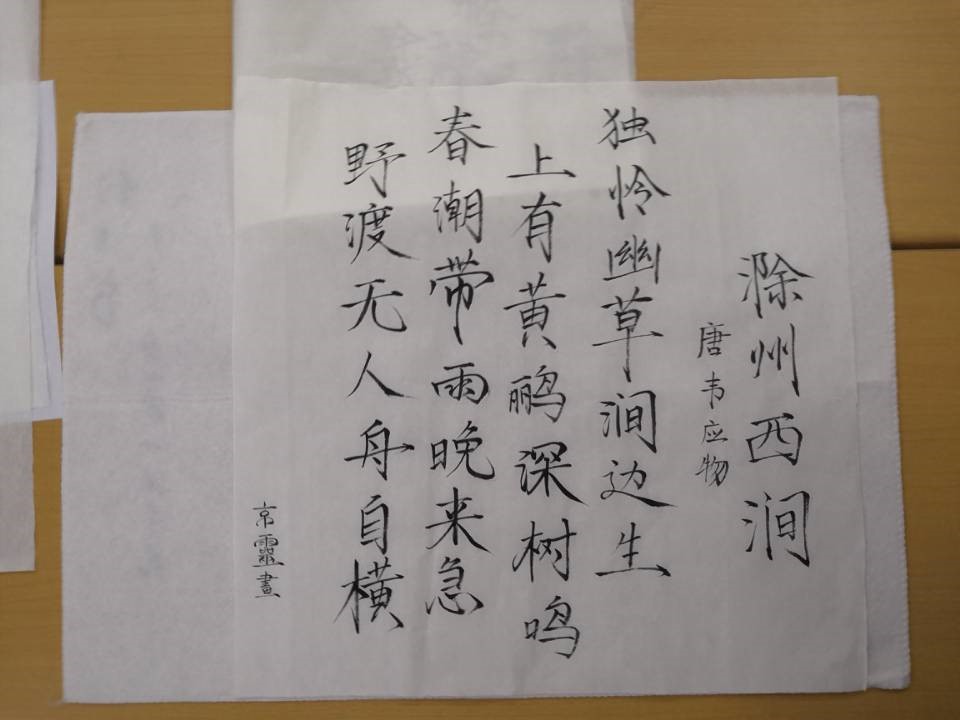 滁州西涧
唐韦应物
独怜幽草涧边生
上有黄鹂深树鸣
春潮带雨晚来急
野渡无人舟自横
京靈晝